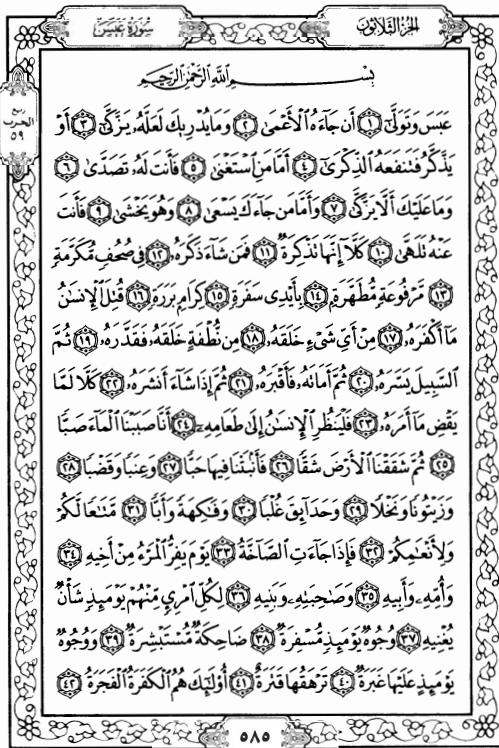 الجُزْءُ الثَّلَاثُونَ
سُورَةُ عَبَسَ
رُبْع
الحِزْب
٥٩
بِسْمِ اللَّهِ الرَّحْمَٰنِ الرَّحِيمِ
عَبَسَ وَتَوَلَّىٰٓ ١ أَن جَآءَهُ ٱلْأَعْمَىٰ ٢ وَمَا يُدْرِيكَ لَعَلَّهُۥ يَزَّكَّىٰٓ ٣ أَوْ
يَذَّكَّرُ فَتَنفَعَهُ ٱلذِّكْرَىٰٓ ٤ أَمَّا مَنِ ٱسْتَغْنَىٰ ٥ فَأَنتَ لَهُۥ تَصَدَّىٰ ٦
وَمَا عَلَيْكَ أَلَّا يَزَّكَّىٰ ٧ وَأَمَّا مَن جَآءَكَ يَسْعَىٰ ٨ وَهُوَ يَخْشَىٰ ٩ فَأَنتَ
عَنْهُ تَلَهَّىٰ ١٠ كَلَّآ إِنَّهَا تَذْكِرَةٌ ١١ فَمَن شَآءَ ذَكَرَهُۥ ١٢ فِي صُحُفٍ مُّكَرَّمَةٍ
١٣ مَّرْفُوعَةٍ مُّطَهَّرَةٍۭ ١٤ بِأَيْدِي سَفَرَةٍ ١٥ كِرَامٍۭ بَرَرَةٍ ١٦ قُتِلَ ٱلْإِنسَٰنُ
مَآ أَكْفَرَهُۥ ١٧ مِنْ أَيِّ شَيْءٍ خَلَقَهُۥ ١٨ مِن نُّطْفَةٍ خَلَقَهُۥ فَقَدَّرَهُۥ ١٩ ثُمَّ
ٱلسَّبِيلَ يَسَّرَهُۥ ٢٠ ثُمَّ أَمَاتَهُۥ فَأَقْبَرَهُۥ ٢١ ثُمَّ إِذَا شَآءَ أَنشَرَهُۥ ٢٢ كَلَّا لَمَّا
يَقْضِ مَآ أَمَرَهُۥ ٢٣ فَلْيَنظُرِ ٱلْإِنسَٰنُ إِلَىٰ طَعَامِهِۦٓ ٢٤ أَنَّا صَبَبْنَا ٱلْمَآءَ صَبًّا
٢٥ ثُمَّ شَقَقْنَا ٱلْأَرْضَ شَقًّا ٢٦ فَأَنۢبَتْنَا فِيهَا حَبًّا ٢٧ وَعِنَبًا وَقَضْبًا ٢٨
وَزَيْتُونًا وَنَخْلًا ٢٩ وَحَدَآئِقَ غُلْبًا ٣٠ وَفَٰكِهَةً وَأَبًّا ٣١ مَّتَٰعًا لَّكُمْ
وَلِأَنْعَٰمِكُمْ ٣٢ فَإِذَا جَآءَتِ ٱلصَّآخَّةُ ٣٣ يَوْمَ يَفِرُّ ٱلْمَرْءُ مِنْ أَخِيهِ ٣٤
وَأُمِّهِۦ وَأَبِيهِ ٣٥ وَصَٰحِبَتِهِۦ وَبَنِيهِ ٣٦ لِكُلِّ ٱمْرِئٍ مِّنْهُمْ يَوْمَئِذٍ شَأْنٌ
يُغْنِيهِ ٣٧ وُجُوهٌ يَوْمَئِذٍ مُّسْفِرَةٌ ٣٨ ضَاحِكَةٌ مُّسْتَبْشِرَةٌ ٣٩ وَوُجُوهٌ
يَوْمَئِذٍ عَلَيْهَا غَبَرَةٌ ٤٠ تَرْهَقُهَا قَتَرَةٌ ٤١ أُو۟لَٰٓئِكَ هُمُ ٱلْكَفَرَةُ ٱلْفَجَرَةُ ٤٢
٥٨٥